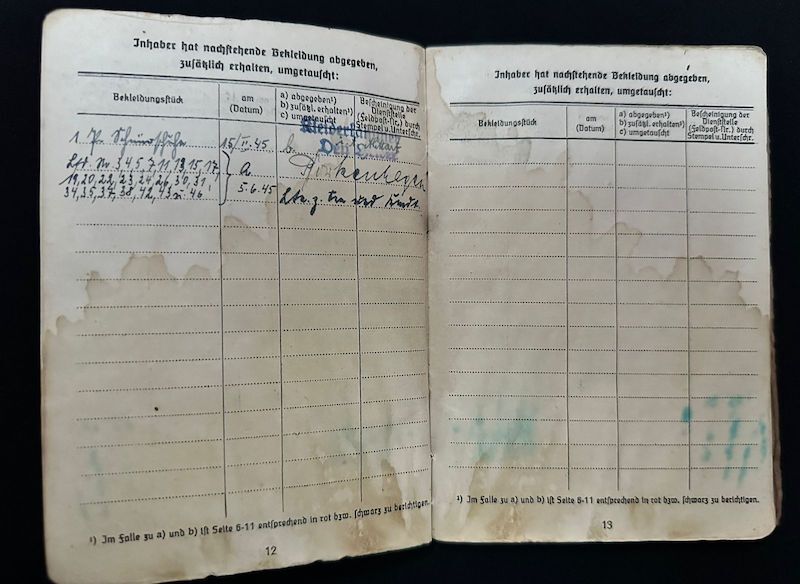 Inhaber hat nachstehende Bekleidung abgegeben,
zusätzlich erhalten, umgetauscht:
Bekleidungsstück
am
(Datum)
a) abgegeben¹)
b) zusätzl. erhalten¹)
c) umgetauscht
Bescheinigung der
Dienststelle
(Feldpost-Nr.) durch
Stempel u. Unterschr.
1 P. Schnürschuhe 15/II.45 b.
Lfd. Nr 3,4,5,7,11,13,15,17,
19,20,22,23,24,26,30,31, a.
34,35,37,38,42,43 u. 46 5.6.45
¹) Im Falle zu a) und b) ist Seite 6-11 entsprechend in rot bzw. schwarz zu berichtigen.
12
Inhaber hat nachstehende Bekleidung abgegeben,
zusätzlich erhalten, umgetauscht:
Bekleidungsstück
am
(Datum)
a) abgegeben¹)
b) zusätzl. erhalten¹)
c) umgetauscht
Bescheinigung der
Dienststelle
(Feldpost-Nr.) durch
Stempel u. Unterschr.
¹) Im Falle zu a) und b) ist Seite 6-11 entsprechend in rot bzw. schwarz zu berichtigen.
13